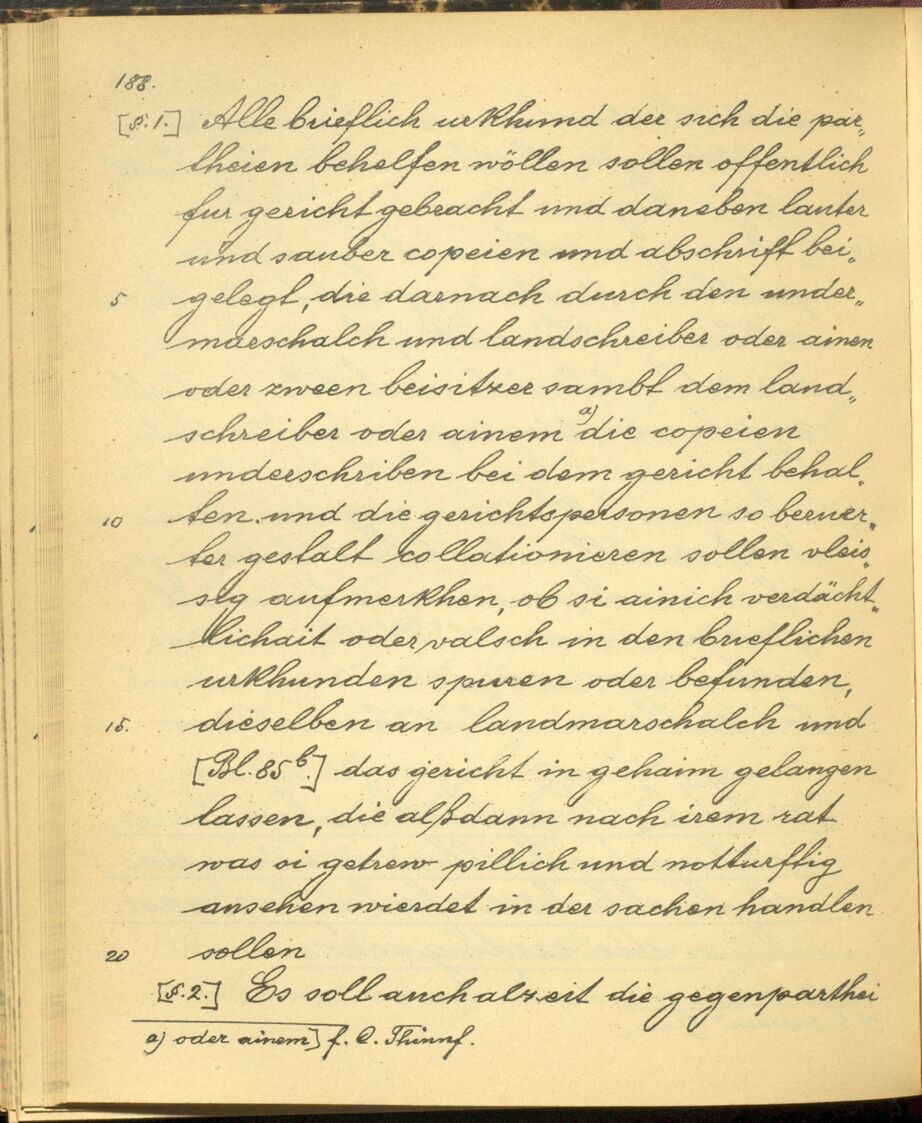 188.
[§.1.] Alle brieflich urkhund der sich die par„
theien behelfen wöllen sollen offentlich
fur gericht gebracht und daneben lauter
und sauber copeien und abschrift bei„
5 gelegt, die darnach durch den under„
marschalch und landschreiber oder ainen
oder zween beisitzer sambt dem land„
schreiber oder ainem a) die copeien
underschriben bei dem gericht behal„
10 ten. und die gerichtspersonen so beruer„
ter gestalt collationieren sollen vleis„
sig aufmerkhen, ob si ainich verdächt„
lichait oder valsch in den brieflichen
urkhunden spuren oder befunden,
15. dieselben an landmarschalch und
[Bl. 85b.] das gericht in gehaim gelangen
lassen, die alßdann nach irem rat
was si getrew pillich und notturftig
ansehen wierdet in der sachen handlen
20 sollen
[§.2.] Es soll auch alzeit die gegenparthei
a) oder ainem] f. C. Thinnf.